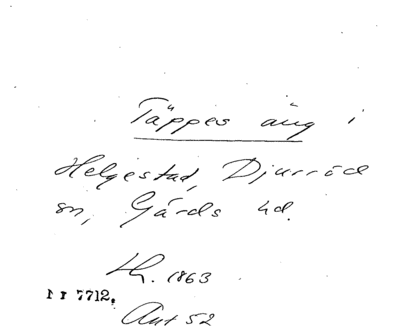 Täppes äng i
Helgestad, Djurröd
sn, Gärds hd.
Th. 1863
7712.
Ant 52